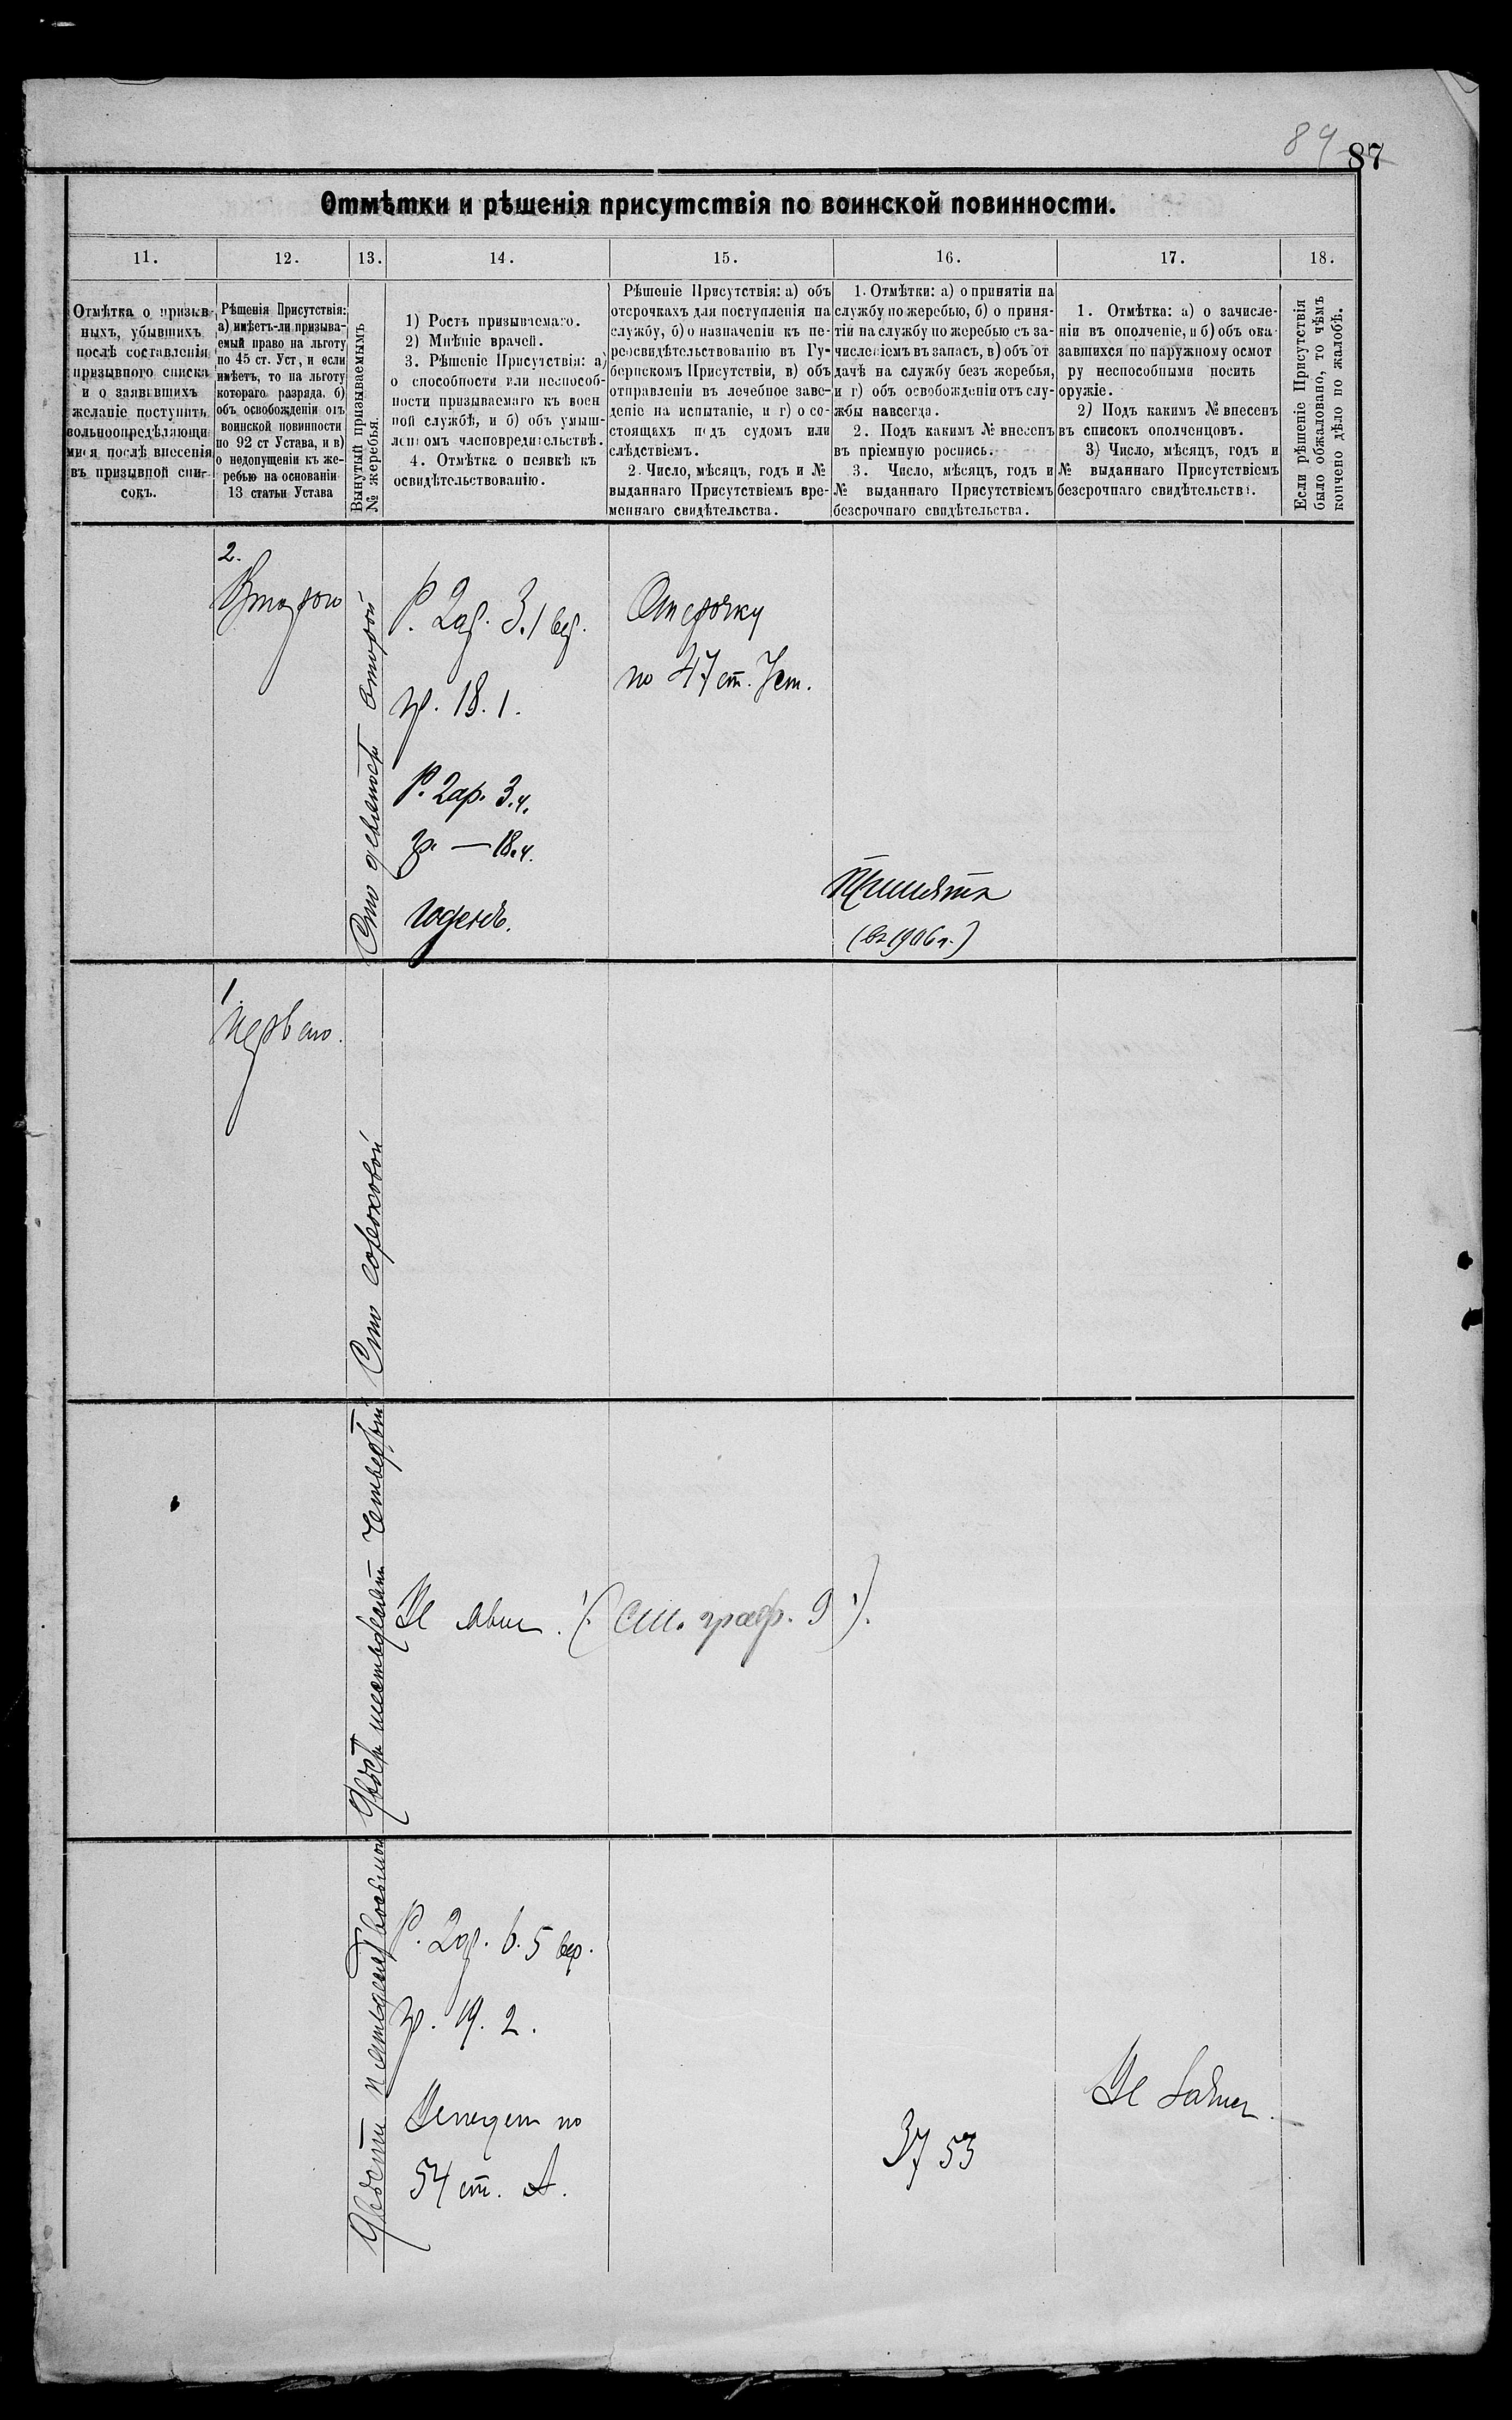 89 87
Отмѣтки и рѣшенія присутствія по воинской повинности.
11. 12. 13. 14. 15. 16. 17. 18.
Отмѣтка о призыв
ныхъ, убывшихъ
послѣ составленія
призывного списка
и о заявившихъ
желаніе поступить
вольноопредѣляющи
мися послѣ внесенія
въ призывной спи-
сокъ.
Рѣшенія Присутствія:
а) имѣетъ-ли призыва-
емый право на льготу
по 45 ст. Уст, и если
имѣетъ, то на льготу
котораго разряда, б)
объ освобожденіи отъ
воинской повинности
по 92 ст Устава, и в)
о недопущеніи къ же-
ребью на основаніи
13 статьи Устава
Вынутый призываемымъ
№ жеребья.
1) Ростъ призываемаго.
2) Мнѣніе врачей.
3. Рѣшеніе Присутствія: а)
о способности или неспособ-
ности призываемаго къ воен
ной службѣ, и б) объ умыш-
леномъ членовредительствѣ.
4. Отмѣтка о неявкѣ къ
освидѣтельствованію.
Рѣшеніе Присутствія: а) объ
отсрочкахъ для поступленія на
службу, б) о назначеніи къ пе-
реосвидѣтельствованію въ Гу-
бернскомъ Присутствіи, в) объ
отправленіи въ лечебное заве-
деніе на испытаніе, и г) о со-
стоящихъ подъ судомъ или
слѣдствіемъ.
2. Число, мѣсяцъ, годъ и №
выданнаго Присутствіемъ вре-
меннаго свидѣтельства.
1. Отмѣтки: а) о принятіи на
службу по жеребью, б) о приня-
тіи на службу по жеребью съ за-
численіемъ въ запасъ, в) объ от
дачѣ на службу безъ жеребья,
и г) объ освобожденіи отъ слу-
жбы навсегда.
2. Подъ какимъ № внесенъ
въ пріемную роспись.
3. Число, мѣсяцъ, годъ и
№ выданнаго Присутствіемъ
безсрочнаго свидѣтельства.
1. Отмѣтка: а) о зачисле-
ніи въ ополченіе, и б) объ ока-
завшихся по наружному осмот
ру неспособными носить
оружіе.
2) Подъ какимъ № внесенъ
въ списокъ ополченцовъ.
3) Число, мѣсяцъ, годъ и
№ выданнаго Присутствіемъ
безсрочнаго свидѣтельства.
Если рѣшеніе Присутствія
было обжаловано, то чѣмъ
кончено дѣло по жалобѣ.
2.
Второго
Сто девяносто второй
Р. 2 ар. 3.1 вер.
гр. 18.1.
Р. 2 ар. 3.4.
гр. — 18.4.
годенъ.
Отсрочку
по 47 ст. Уст.
Принятъ
(въ 1906 г.)
1.
Перваго.
Сто сороковой
Двѣсти шестьдесятъ четвертый
Не явил. (см. граф. 9).
Двѣсти пятьдесятъ восьмой
Р. 2 ар. 6.5 вер.
гр. 19.2.
по
54 ст. А.
37 53
Не